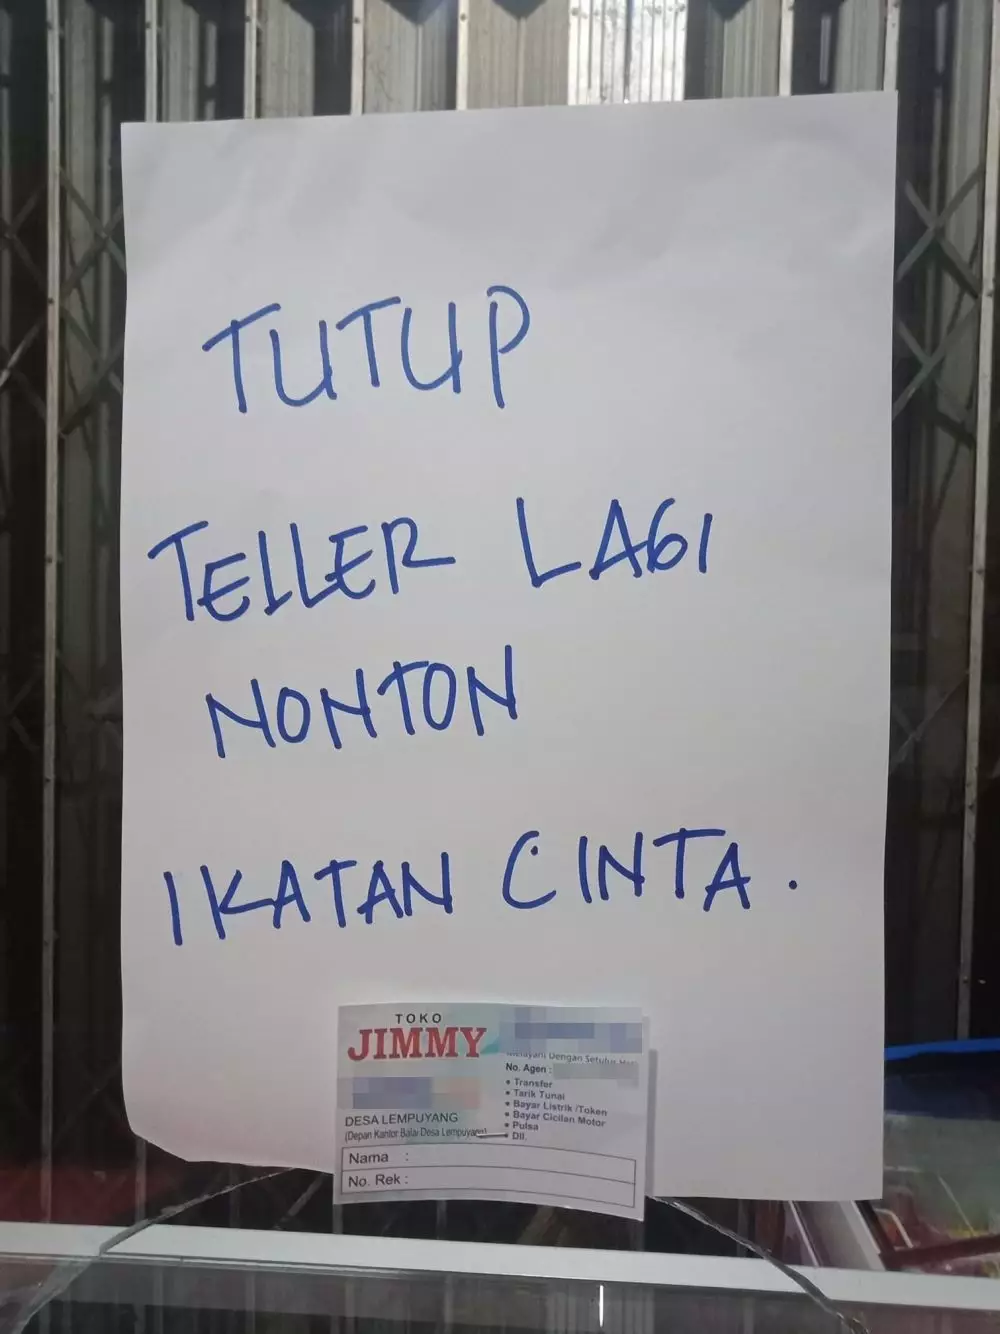 TUTUP
TELLER LAGI
NONTON
IKATAN CINTA.
TOKO
JIMMY
DESA LEMPUYANG
(Depan Kantor Balai Desa Lempuyang)
Melayani Dengan Setulus
No. Agen :
• Transfer
• Tarik Tunai
• Bayar Listrik /Token
• Bayar Cicilan Motor
• Pulsa
• Dll.
Nama :
No. Rek :